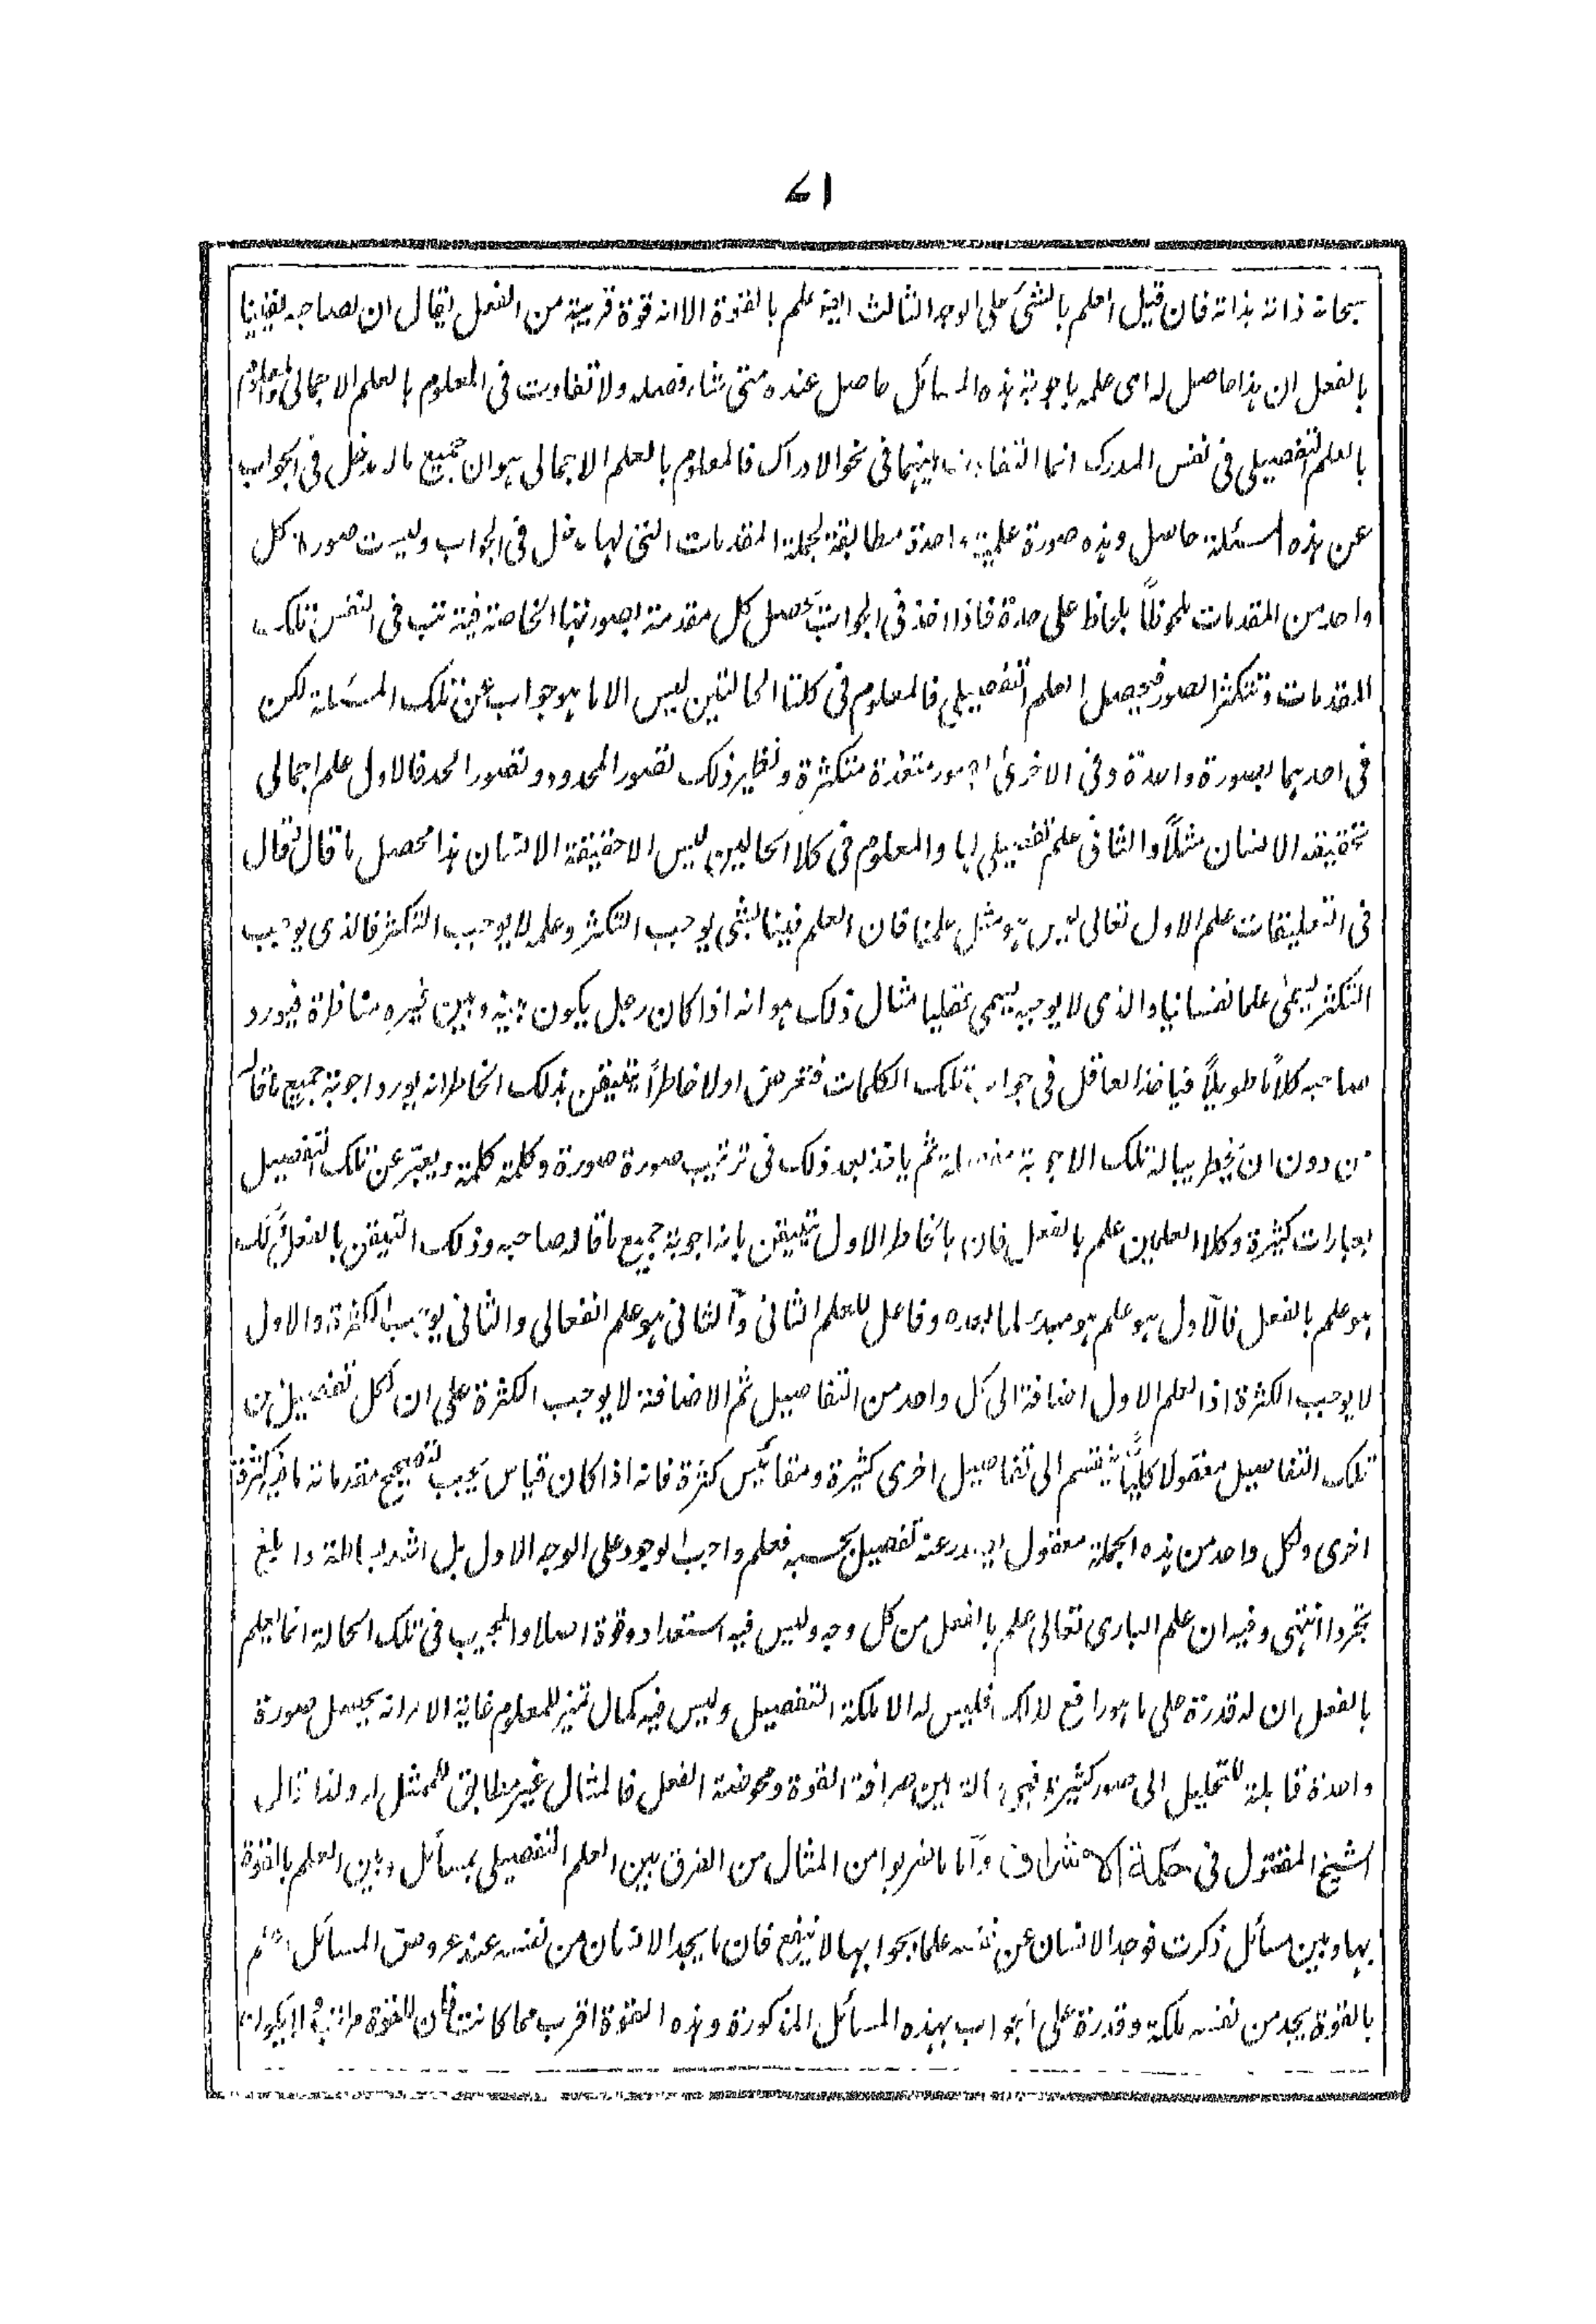 ٧١
سبحانه ذاته بذاته فان قيل العلم بالشئ على الوجه الثالث ايضا علم بالقوة الا انه قوة قريبة من الفعل يقال ان لصاحبه يقينا
بالفعل ان هذا حاصل له اى علمه باجوبة هذه المسائل حاصل عنده متى شاء فصله ولا تفاوت فى المعلوم بالعلم الاجمالى والمعلوم
بالعلم التفصيلى فى نفس المدرك انما التفاوت بينهما فى نحو الادراك فالمعلوم بالعلم الاجمالى هو ان جميع ما له دخل فى الجواب
عن هذه المسئلة حاصل وهذه صورة علمية واحدة مطابقة لجملة المقدمات التى لها دخل فى الجواب وليست صورة كل
واحد من المقدمات ملحوظا بلحاظ على حدة فاذا اخذ فى الجواب يحصل كل مقدمة بصورتها الخاصة فيترتب فى النفس تلك
المقدمات وتتكثر الصور فيحصل العلم التفصيلى فالمعلوم فى كلتا الحالتين ليس الا ما هو جواب عن تلك المسئلة لكن
فى احديهما بصورة واحدة وفى الاخرى بصور متعددة متكثرة ونظير ذلك تصور المحدود وتصور الحد فالاول علم اجمالى
بحقيقة الانسان مثلا والثانى علم تفصيلى بها والمعلوم فى كلا الحالين ليس الا حقيقة الانسان هذا محصل ما قال فقال
فى التعليقات علم الاول تعالى ليس هو مثل علمنا فان العلم فينا لشئ يوجب التكثر وعلمه لا يوجب التكثر فالذى يوجب
التكثر يسمى علما نفسانيا والذى لا يوجبه يسمى عقليا مثال ذلك هو انه اذا كان رجل يكون بينه وبين غيره مناظرة فيورد
صاحبه كلاما طويلا فياخذ العاقل فى جواب تلك الكلمات فتعرض اولا خاطرا يتيقن بذلك الخاطر انه يورد اجوبة جميع ما قاله
من دون ان يخطر بباله تلك الاجوبة مفصلة ثم ياخذ بعد ذلك فى ترتيب صورة صورة وكلمة كلمة ويعبر عن تلك التفصيل
بعبارات كثيرة وكلا العلمين علم بالفعل فان بالخاطر الاول يتيقن بانه اجوبة جميع ما قاله صاحبه وذلك التيقن بالفعل كذلك
هو علم بالفعل فالاول هو علم هو مبدء لما بعده وفاعل للعلم الثانى والثانى هو علم انفعالى والثانى يوجب الكثرة والاول
لا يوجب الكثرة اذ العلم الاول اضافة الى كل واحد من التفاصيل ثم الاضافة لا يوجب الكثرة على ان لكل تفصيل من
تلك التفاصيل معقولا كليا ينقسم الى تفاصيل اخرى كثيرة ومقائيس كثرة فانه اذا كان قياس يجب تصحيح مقدماته
اخرى ولكل واحد من هذه الجملة معقول يصدر عنه تفصيل بحسبه فعلم واجب الوجود على الوجه الاول بل اشد بساطة وابلغ
تجردا انتهى وفيه ان علم البارى تعالى علم بالفعل من كل وجه وليس فيه استعداد وقوة اصلا والمجيب فى تلك الحالة انما يعلم
بالفعل ان له قدرة على ما هو رافع لذلك فليس له الا ملكة التفصيل وليس فيه كمال تميز للمعلوم غاية الامر انه يحصل صورة
واحدة قابلة للتحليل الى صور كثيرة فهى حالة بين صرافة القوة ومحوضة الفعل فالمثال غير مطابق للممثل له ولذا قال
الشيخ المقتول فى حكمة الاشراق واما ما ضربوا من المثال من الفرق بين العلم التفصيلى بمسائل وبين العلم بالقوة
بها وبين مسائل ذكرت فوجد الانسان عن نفسه علما بجوابها لا ينفع فان ما يجد الانسان من نفسه عند عروض المسائل علم
بالقوة يجد من نفسه ملكة وقدرة على الجواب بهذه المسائل المذكورة وهذه القوة اقرب مما كانت فان للقوة مراتب